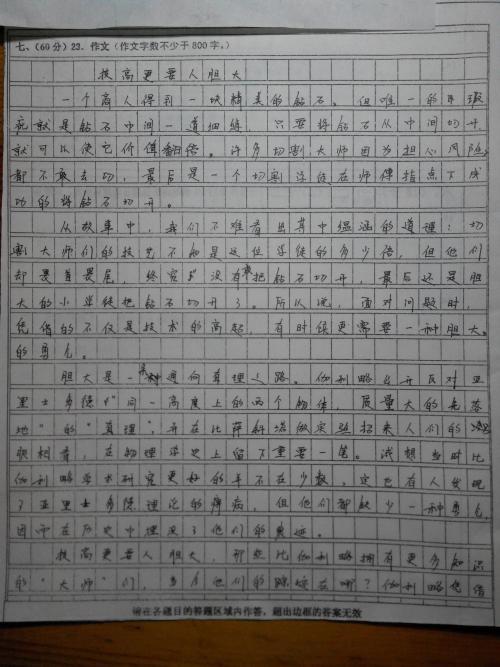 七、(60分) 23. 作文 (作文字数不少于800字。)
技高更要人胆大
一个商人得到一块精美的钻石。但唯一的瑕
疵就是钻石中间一道细缝,只要将钻石从中间切开,
就可以使它价值翻倍。许多切割大师因为担心风险,
都不敢去切,最后是一个切割学徒在师傅指点下成
功的将钻石切开。
从故事中,我们不难看出其中蕴涵的道理:切
割大师们的技艺不知是这位学徒的多少倍,但他们
却畏首畏尾,终究没有敢把钻石切开,最后还是胆
大的小学徒把钻石切开了。所以说,面对问题时,
凭借的不仅是技术的高超,有时候更需要一种胆大
的勇气。
胆大是一条通向真理之路。伽利略公开反对亚
里士多德"同一高度上的两个物体,质量大的先落
地"的"真理",并在比萨斜塔做实验招来人们的
眼相看,在物理学史上留下重要一笔。试想当时比
伽利略学术研究更好的车不在少数,定也有人发现
了亚里士多德理论的弊病,但他们都缺少一种勇气,
因而在历史中埋没了他们的
技高更要人胆大,那些比伽利略拥有更多知识
的"大师"们,当今他们的踪迹在哪?伽利略凭借
请在各题目的答题区域内作答,超出边框的答案无效